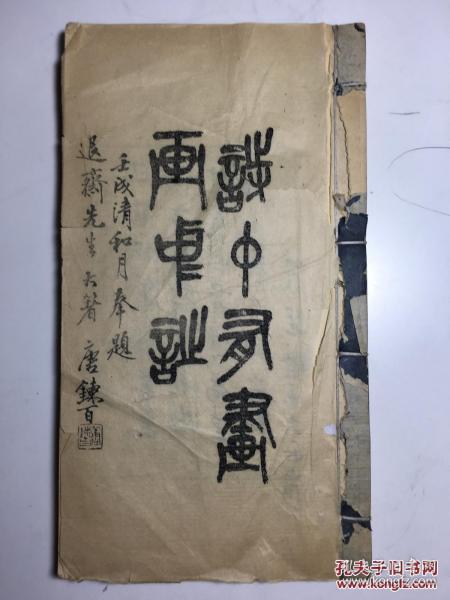 詩中有畫
画中詩
壬戌清和月奉題
退齋先生大箸 唐鍊百
孔夫子旧书网
www.kongfz.com